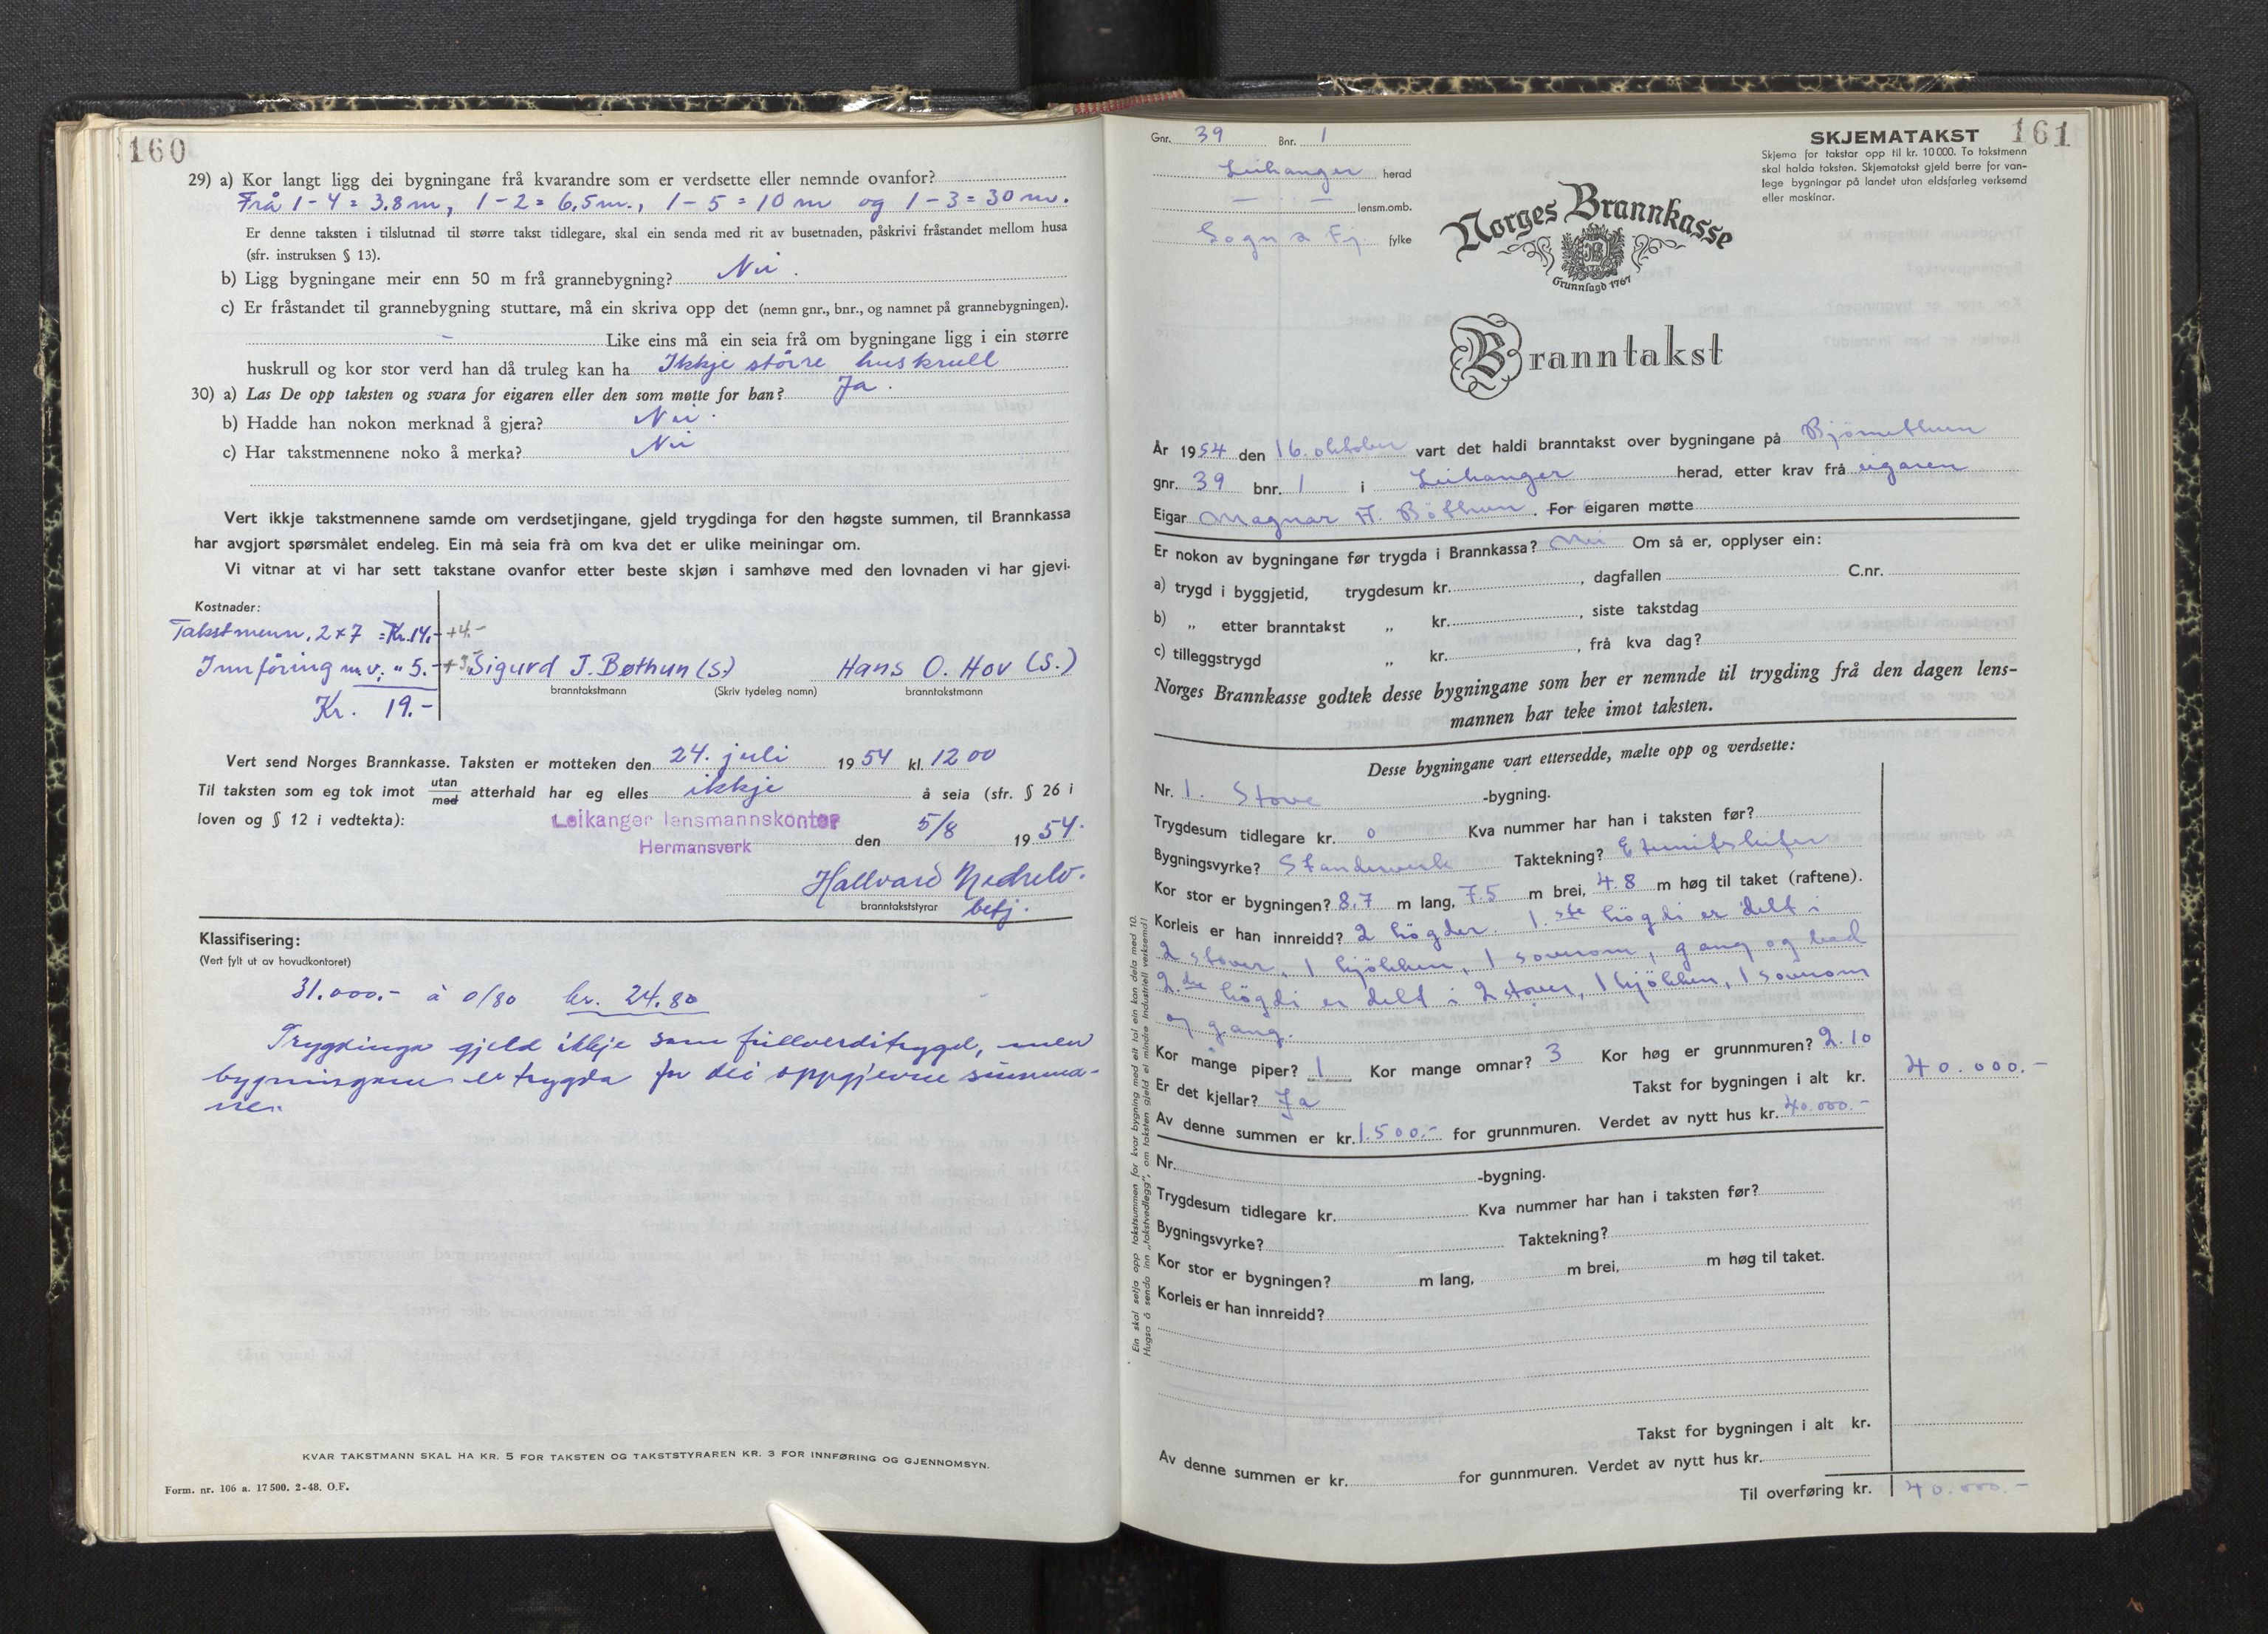 160
29) a) Kor langt ligg dei bygningane frå kvarandre som er verdsette eller nemnde ovanfor?
Frå 1-4 = 3.8 m, 1-2 = 6,5 m., 1-5 = 10 m og 1-3 = 30 m.
Er denne taksten i tilslutnad til større takst tidlegare, skal ein senda med rit av busetnaden, påskrivi fråstandet mellom husa
(sfr. instruksen § 13).
b) Ligg bygningane meir enn 50 m frå grannebygning? Nei.
c) Er fråstandet til grannebygning stuttare, må ein skriva opp det (nemn gnr., bnr., og namnet på grannebygningen).
- Like eins må ein seia frå om bygningane ligg i ein større
huskrull og kor stor verd han då truleg kan ha Ikkje større huskrull
30) a) Las De opp taksten og svara for eigaren eller den som møtte for han? Ja.
b) Hadde han nokon merknad å gjera? Nei.
c) Har takstmennene noko å merka? Nei
Vert ikkje takstmennene samde om verdsetjingane, gjeld trygdinga for den høgste summen, til Brannkassa
har avgjort spørsmålet endeleg. Ein må seia frå om kva det er ulike meiningar om.
Vi vitnar at vi har sett takstane ovanfor etter beste skjøn i samhøve med den lovnaden vi har gjevi.
Kostnader:
Takstmenn, 2x7 = Kr. 14.- +4.-
Innföring m.v. " 5.- Sigurd J. Bøthun (s) Hans O. Hov (S.)
branntakstmann (Skriv tydeleg namn) branntakstmann
Kr. 19.-
Vert send Norges Brannkasse. Taksten er motteken den 24. juli 1954 kl. 12 00
Til taksten som eg tok imot utan/med atterhald har eg elles ikkje å seia (sfr. § 26 i
loven og § 12 i vedtekta):
Leikanger lensmannskontor
Hermansverk
den 5/8 1954.
Hallvard Nedrelo.
branntakststyrar betj.
Klassifisering:
(Vert fylt ut av hovudkontoret)
31.000.- à 0/80 kr. 24.80
Trygdinga gjeld ikkje som fullverditrygd, men
bygningane er trygda for dei oppgjevne summa-
ne.
KVAR TAKSTMANN SKAL HA KR. 5 FOR TAKSTEN OG TAKSTSTYRAREN KR. 3 FOR INNFØRING OG GJENNOMSYN.
Form. nr. 106 a. 17 500. 2-48. O.F.
161
Gnr. 39 Bnr. 1
Leikanger herad
— " — lensm.omb.
Sogn & Fj. fylke
SKJEMATAKST
Skjema for takstar opp til kr. 10 000. To takstmenn
skal halda taksten. Skjematakst gjeld berre for van-
lege bygningar på landet utan eldsfarleg verksemd
eller maskinar.
Norges Brannkasse
Grunnlagd 1767
Branntakst
År 1954 den 16. oktober vart det haldi branntakst over bygningane på Björnethun
gnr. 39 bnr. 1 i Leikanger herad, etter krav frå eigaren
Eigar Magnar A. Böthun. For eigaren møtte
Er nokon av bygningane før trygda i Brannkassa? Nei Om så er, opplyser ein:
a) trygd i byggjetid, trygdesum kr. , dagfallen C.nr.
b) „ etter branntakst „ kr. , siste takstdag
c) tilleggstrygd „ kr. , frå kva dag?
Norges Brannkasse godtek desse bygningane som her er nemnde til trygding frå den dagen lens-
mannen har teke imot taksten.
Desse bygningane vart ettersedde, mælte opp og verdsette:
Nr. 1. Stove -bygning.
Trygdesum tidlegare kr. 0 Kva nummer har han i taksten før?
Bygningsvyrke? Standerverk Taktekning? Eternitskifer
Kor stor er bygningen? 8,7 m lang, 7.5 m brei, 4.8 m høg til taket (raftene).
Korleis er han innreidd? 2 högder. 1.ste högdi er delt i
2 stover, 1 kjökken, 1 soverom, gang og bad
2.dre högdi er delt i 2 stover, 1 kjökken, 1 soverom
og gang.
Kor mange piper? 1 Kor mange omnar? 3 Kor høg er grunnmuren? 2.10
Er det kjellar? Ja Takst for bygningen i alt kr. 40.000.-
Av denne summen er kr. 1.500.- for grunnmuren. Verdet av nytt hus kr. 40.000.-
Nr. -bygning.
Trygdesum tidlegare kr. Kva nummer har han i taksten før?
Bygningsvyrke? Taktekning?
Kor stor er bygningen? m lang, m brei, m høg til taket.
Korleis er han innreidd?
Takst for bygningen i alt kr.
Av denne summen er kr. for gunnmuren. Verdet av nytt hus kr.
Til overføring kr. 40.000.-
Ein skal setja opp takstsummen for kvar bygning med eit tal ein kan dela med 10.
Hugsa å senda inn „takstvedlegg”, om taksten gjeld ei mindre industriell verksemd!